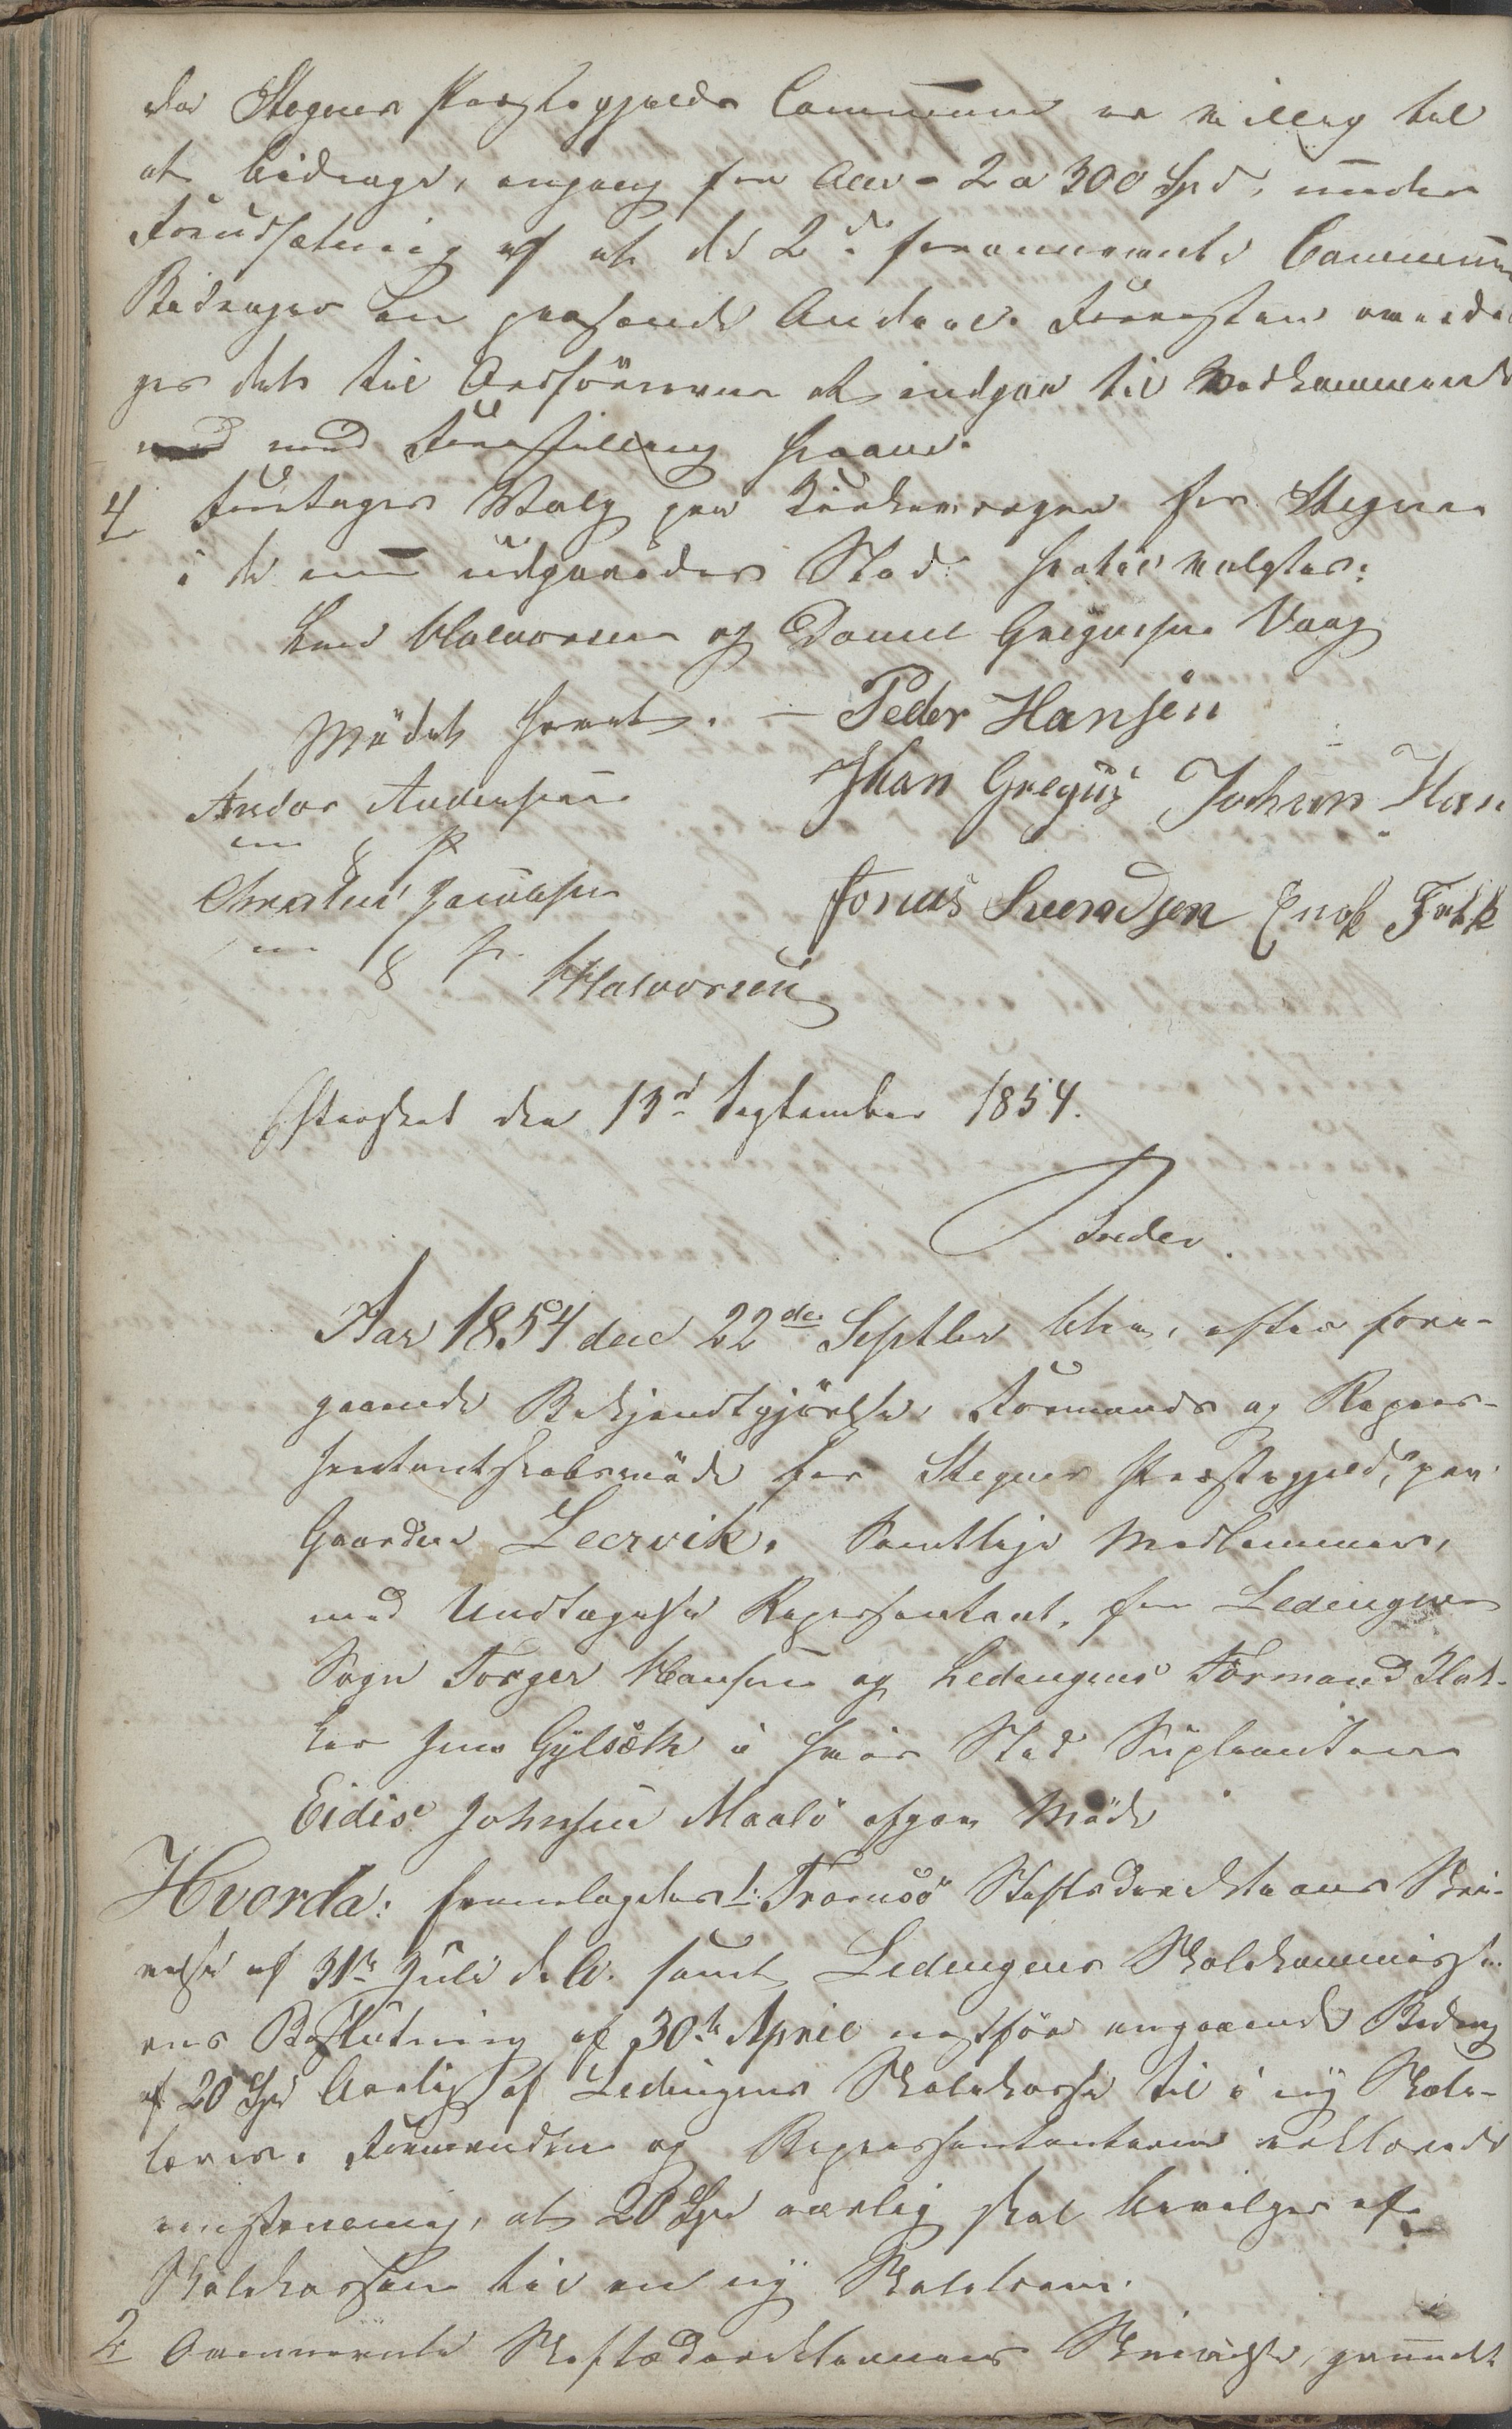 der Stegens Præstegjelds Commune er villig til
at bidrage, engang for alle - 2 a 300 Spd, under
Forudsætning af at de 2de forannævnte Communer
Bidrager en passende Andeel. Forresten overdra
ges det til Ordføreren at indgaa til Vedkommende
med Forestilling herom.
4 Foretages Valg paa Kirkeværger for Stegen
i de nu udgaaedes Sted: hertil valgtes:
Halvorsen og Daniel Gregusen Vaag
Mødet hævet. - Peder Hansen
Andor Andersen Jhan Gregus Johan Han
m f P
Christen Jacobsen Jonas Svendsen Enok Falk
m f P
Halvorsen
Efterseet den 13de September 1854.
Aar 1854 den 22de Septbr blev, efter fore-
gaaende Bekjendtgjørelse, Formands og Repræ-
sentantskabsmøde for Stegens Præstegjeld, paa
Gaarden Leervik. Samtlige Medlemmer,
med Undtagelse Repræsentant, for Ledingens
Sogn Torger Hansen og Ledingens Formand Klok-
ker Jens Gylseth i hvis Sted Suplianten
Eidis Johnsen Maalø afgav Møde
Hvorda: fremlagdes 1: Tromsø Stiftsdirektions Skri-
velse af 31te Juli d. A. samt Ledingens Skolekommissi-
ons Beslutning af 30te April næstfør angaaende Bidrag
af 20 Spd Aarlig af Ledingens Skolekasse til i ny Skole-
lærer. Formændene og Repræsentanterne erklærede
eenstemmig, at 20 Spd aarlig skal bevilges af
Skolekassen til en ny Skolelærer.
2 Ovennævnte Stiftsdirektions Skrivelse, grundet